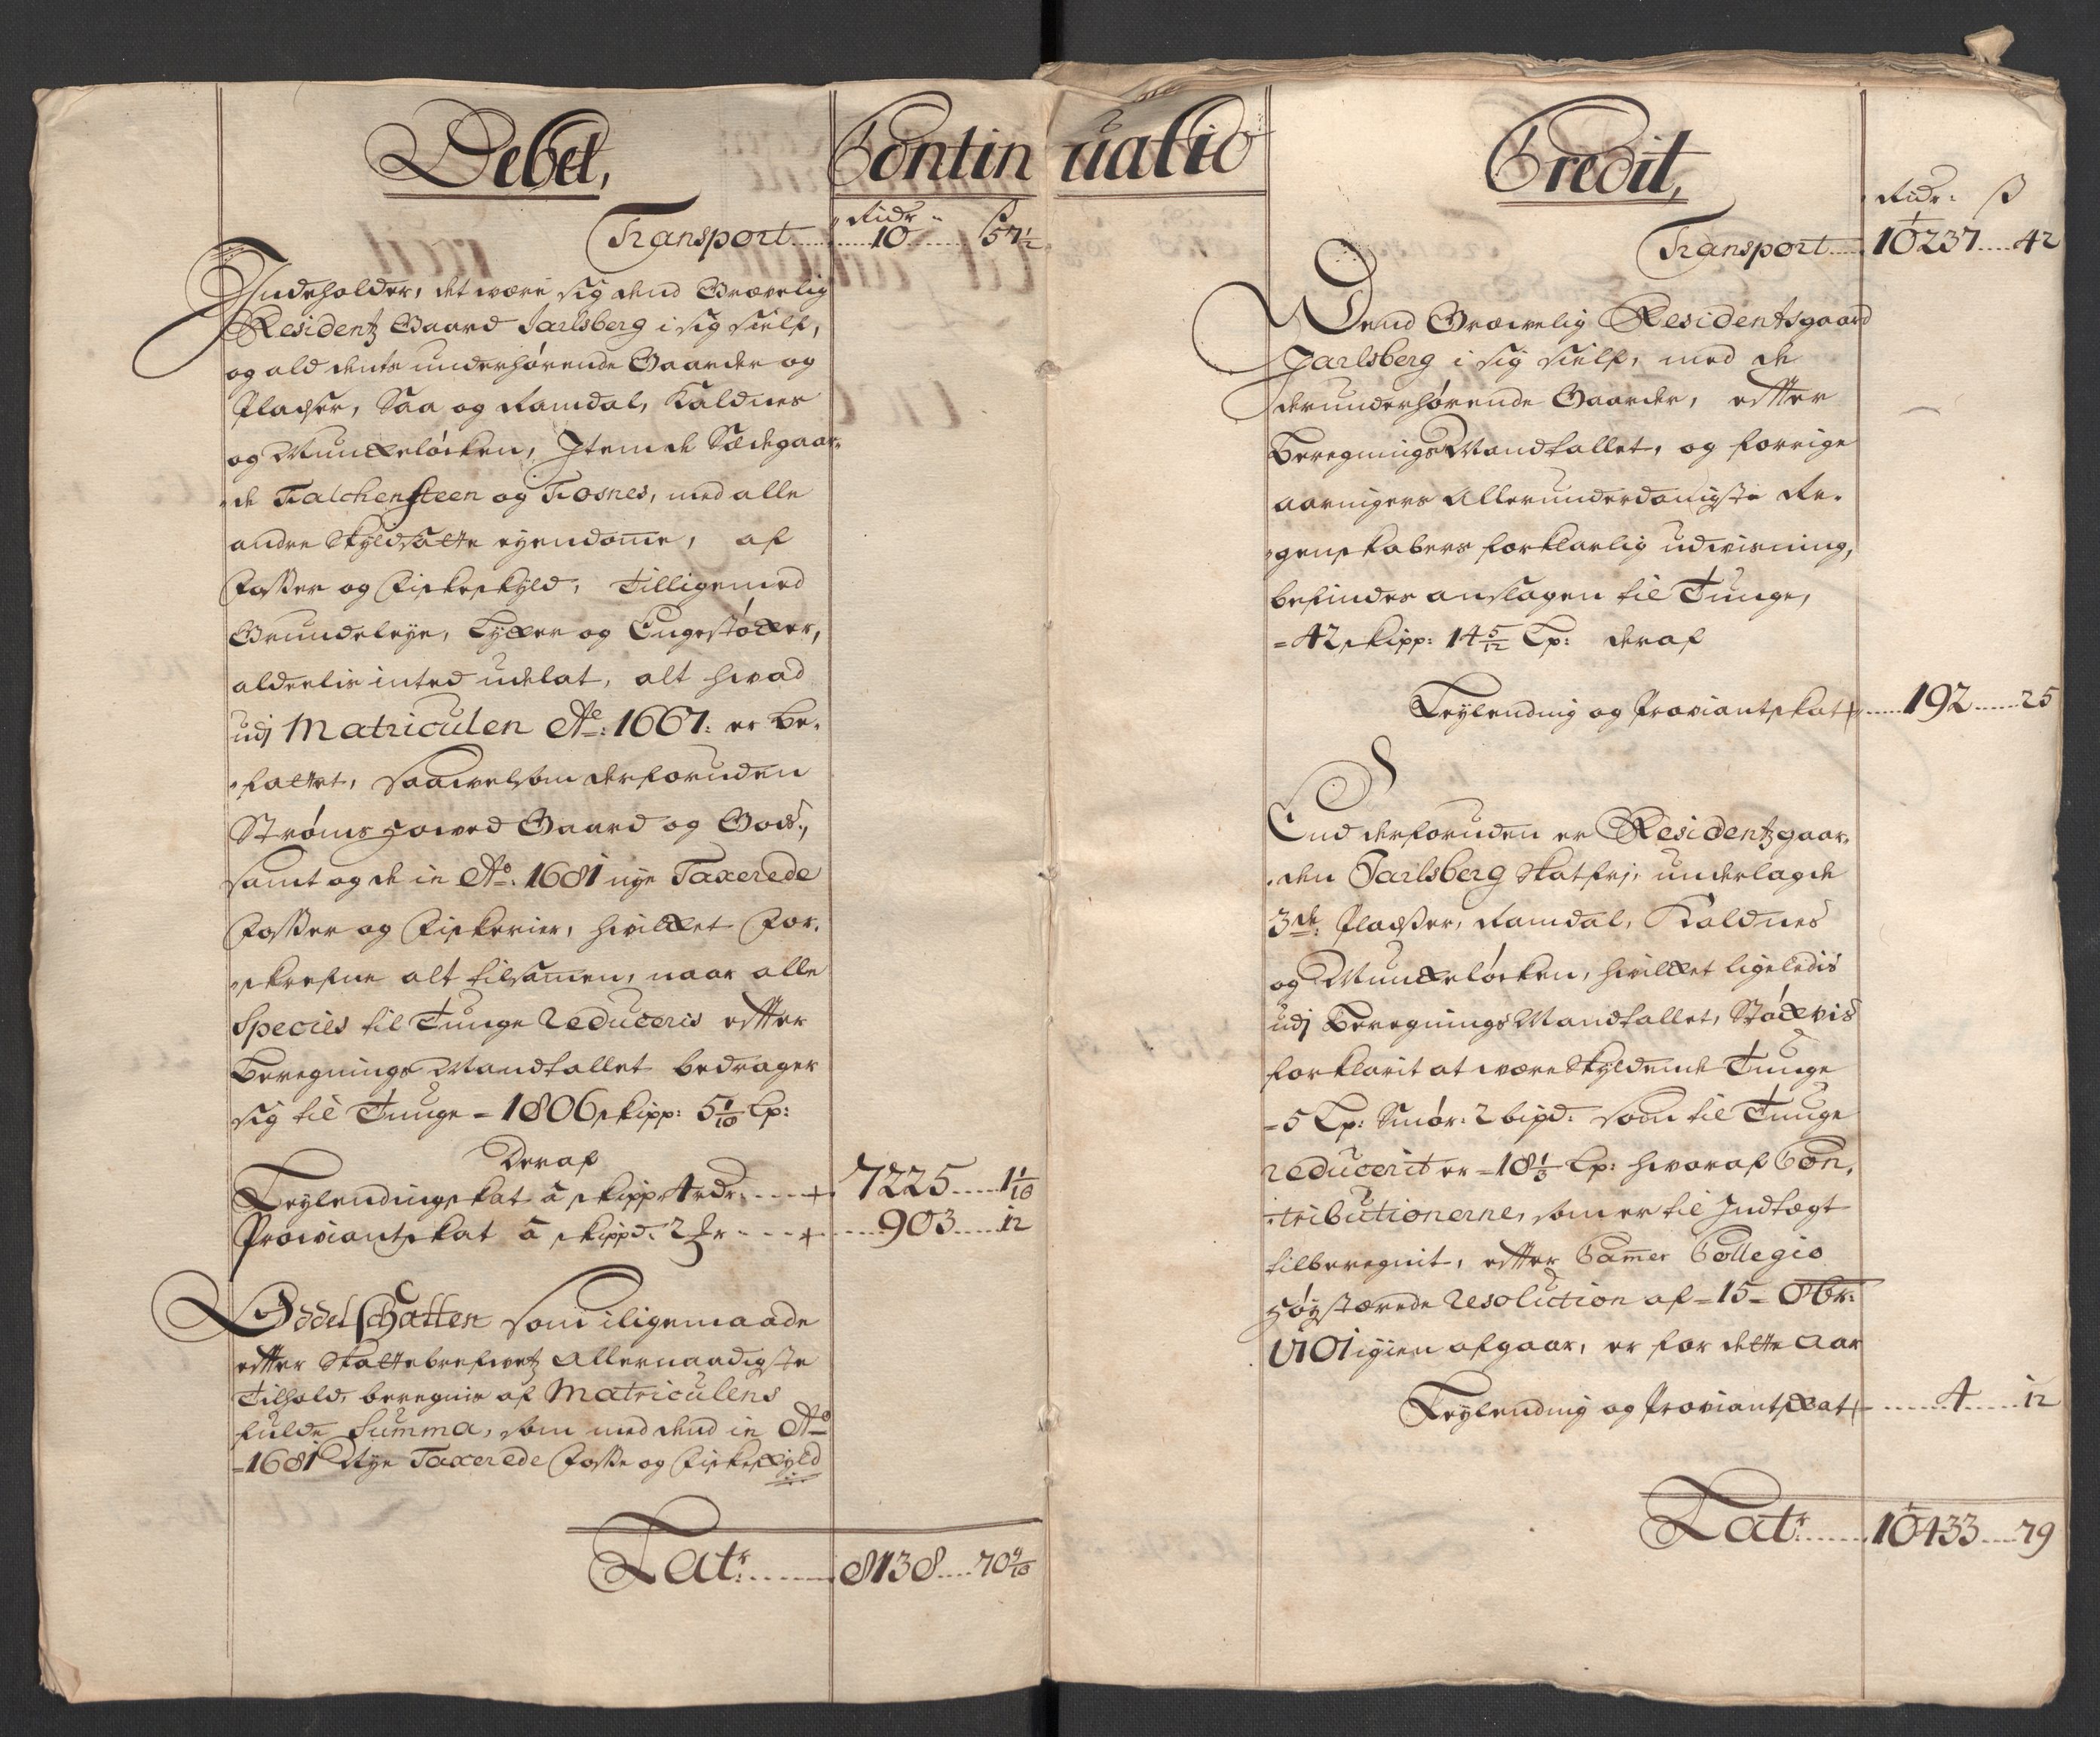 Debet,
Continuatio
Ridr. ß
Transport 10 57 1/2
Indeholder, det være sig dend Grævelig
Residentz Gaard Jarlsberg i sig sielf,
og ald dents underhørende Gaarder og
Pladser, Saa og Ramdal, Kaldnes
og Munkeløcken, Item de Sædegaar-
de Falchensteen og Fosnes, med alle
andre Skyldsatte eyendome, af
Fosser og Fiskeskyld, Tilligemed
Grundeleye, Tyller og Engestøcker,
alderlis inted udelat, alt hvad
udj Matriculen Ao: 1667: er be-
fattet, saavelsom derforuden
Strømshoved Gaard og Gods,
samt og de in Ao. 1681 nye Taxerede
Fosser og Fiskerier, hvilket For-
skrefne alt tilsamen, naar alle
Species til Tunge reduceris effter
Beregnings Mandtallet bedrager
sig til Tunge - 1806 skipp: 5 1/10 Lp:
Deraf
Leylendingskat à skipp 4 rdr 7225 1 1/10
Proviantskat à skippd. 2 ſr 903 12
Oddelschatten som iligemaade
effter Skattebrefvetz Allernaadigste
Tilhold, beregnis af Matriculens
fulde Summa, som med dend in Ao
1681 Nye Taxerede Fosse og Fiskeskyld
Latr. 8138 70 9/10
Credit,
Ridr. ß
Transport 10237 42
Dend Grævelig Residentsgaard
Jarlsberg i sig sielf, med de
derunderhørende Gaarder, effter
Beregnings Mandtallet, og forrige
aaringers Allerunderdanigste Re-
genskabers forklarlig udvisning,
befindes anslagen til Tunge,
42 skipp: 14 5/12 Lp: deraf
Leylending og Proviantskat 192 25
End derforuden er Residentzgaar-
den Jarlsberg Skatfrj, underlagde
3de Pladser, Ramdal, Kaldnes
og Munkeløcken, hvilket ligeledis
udj Beregnings Mandtallet, Støckvis
forklarit at være Skyldende Tunge
- 5 Lp: Smør: 2 bipd: som til Tunge
reducerit er - 18 1/3 Lp: hvoraf Con-
tributionerne, som er til Indtægt
tilberegnit, effter Camer Collegio
Høystærede resolution af - 15 - 8br:
1701 igien afgaar, er for dette Aar
Leylending og Proviantskat 4 12
Latr. 10433 79